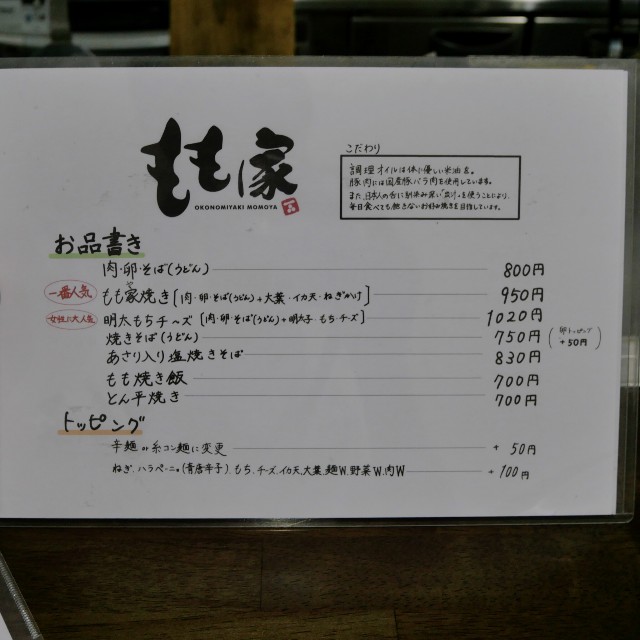 もも家
OKONOMIYAKI MOMOYA
こだわり
調理オイルは体に優しい米油&。
豚肉には国産豚バラ肉を使用しています。
また、日本人の舌に馴染み深い"豆汁"を使うことにより、
毎日食べても飽きないお好み焼きを目指しています。
お品書き
肉・卵・そば(うどん) 800円
一番人気 もも家焼き[肉・卵・そば(うどん)+大葉・イカ天・ねぎかけ] 950円
女性に大人気 明太もちチーズ[肉・卵・そば(うどん)+明太子・もち・チーズ] 1020円
焼きそば(うどん) 750円 (卵トッピング +50円)
あさり入り塩焼きそば 830円
もも焼き飯 700円
とん平焼き 700円
トッピング
辛麺or糸コン麺に変更 + 50円
ねぎ、ハラペーニョ(青唐辛子)、もち、チーズ、イカ天、大葉、麺W、野菜W、肉W + 100円